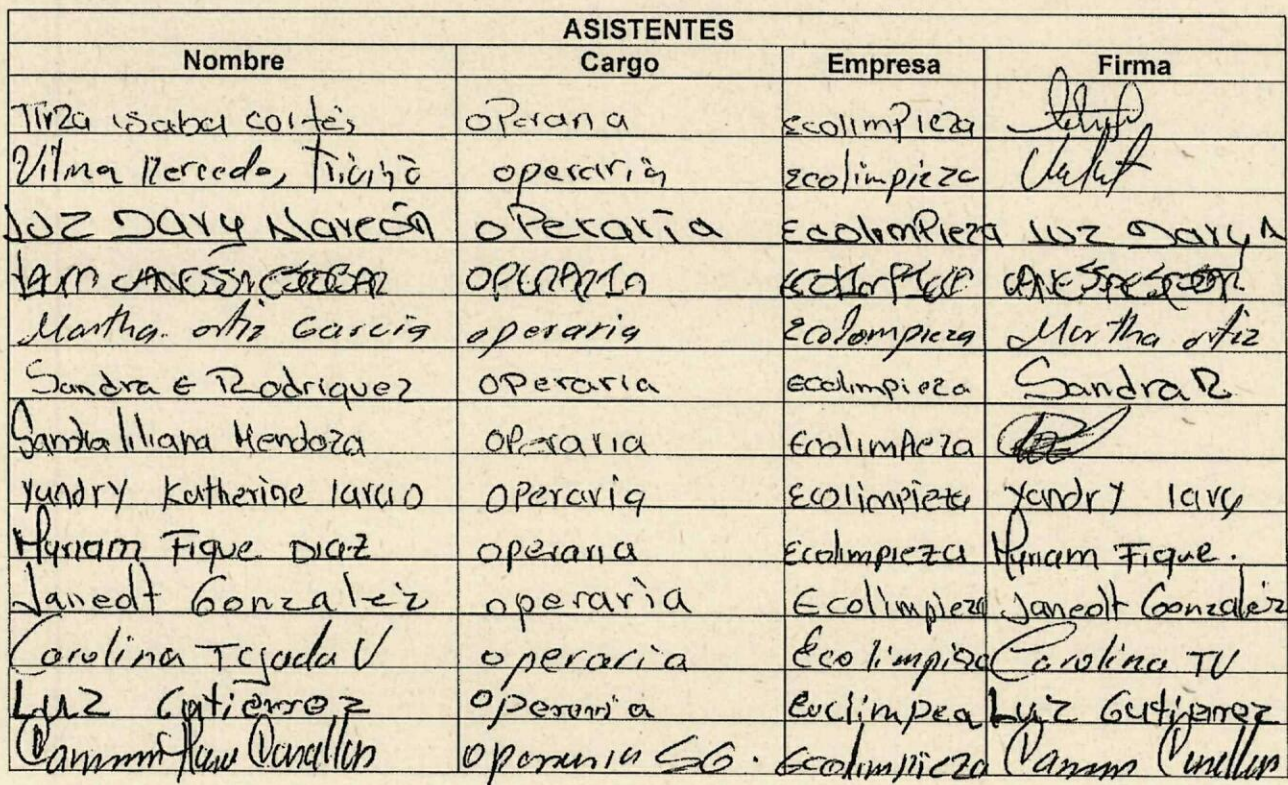 ASISTENTES
Nombre Cargo Empresa Firma
Tirza isabel cortes operaria ecolimpieza
Vilma Mercedes operaria ecolimpieza
Luz Dary Alarcón operaria Ecolimpieza Luz Dary A
OPERARIA
Martha. ortiz Garcia operaria Ecolompieza Martha ortiz
Sandra E Rodriquez operaria ecolimpieza Sandra R
Sandra liliana Mendoza operaria Ecolimpieza
Yandry Katherine operaria Ecolimpieza Yandry
Myriam Fique Diaz operaria Ecolimpieza Myriam Fique.
Janeolt Gonzalez operaria Ecolimpieza Janeolt Gonzalez
Carolina Tejada V operaria Ecolimpieza Carolina TV
Luz Gutierrez operaria Luz Gutierrez
SG. Ecolimpieza